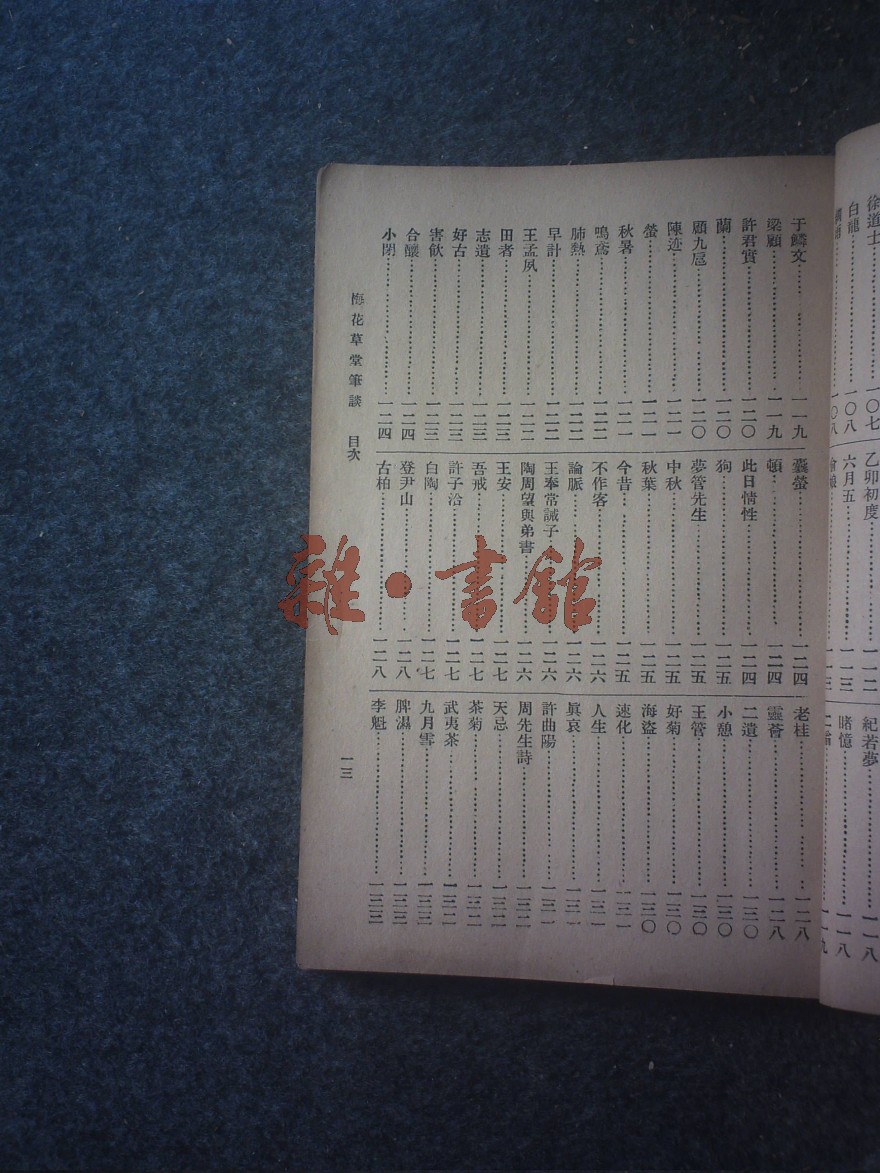 徐道士……一〇七
白龍……一〇八
一〇八
乙卯初度……一一二
六月五……一一三
一一三
紀若夢……一一八
睹憶……一一八
一一九
于鱗文……一一九
梁顧……一一九
許君實……一二〇
蘭……一二〇
顧九巵……一二〇
陳迹……一二一
螢……一二一
秋暑……一二一
鳴鳶……一二二
肺熱……一二二
早計……一二二
王孟夙……一二二
田者……一二二
志遺……一二三
好古……一二三
害飲……一二三
合釀……一二四
小閉……一二四
囊螢……一二四
頓……一二四
此日情性……一二四
狗……一二五
夢管先生……一二五
中秋……一二五
秋葉……一二五
今昔……一二五
不作客……一二六
論脈……一二六
王奉常誡子……一二六
陶周望與弟書……一二六
王安……一二七
吾戒……一二七
許子洽……一二七
白陶……一二七
登尹山……一二八
古柏……一二八
老桂……一二八
靈薈……一二八
二遺……一三〇
小憩……一三〇
王管……一三〇
好菊……一三〇
海盜……一三〇
速化……一三一
人生……一三一
眞哀……一三一
許曲陽……一三一
周先生詩……一三二
天忌……一三二
茶菊……一三二
武夷茶……一三二
九月雪……一三三
脾濕……一三三
李魁……一三三
梅花草堂筆談 目次 一三
雜·書館